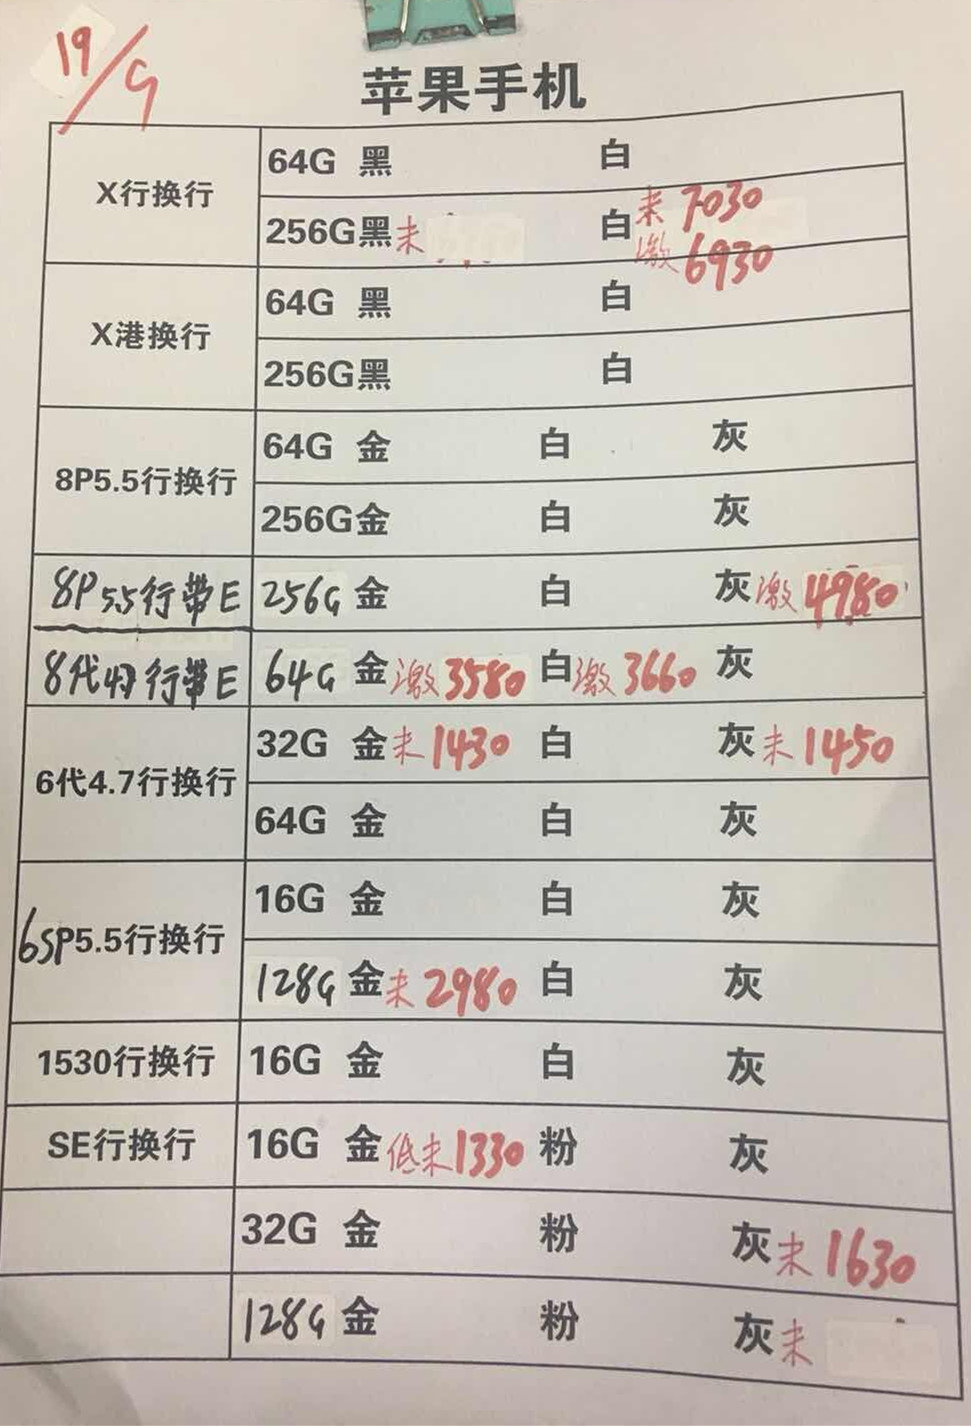 19/9
苹果手机
X行换行
64G 黑 白
256G黑未 白未 7030
激 6930
X港换行
64G 黑 白
256G黑 白
8P5.5行换行
64G 金 白 灰
256G金 白 灰
8P5.5行带E 256G 金 白 灰激 4980
8代4.7行带E 64G 金激3580 白激3660 灰
6代4.7行换行
32G 金未1430 白 灰未1450
64G 金 白 灰
6SP5.5行换行
16G 金 白 灰
128G 金未2980 白 灰
1530行换行 16G 金 白 灰
SE行换行 16G 金低未1330 粉 灰
32G 金 粉 灰未1630
128G 金 粉 灰未